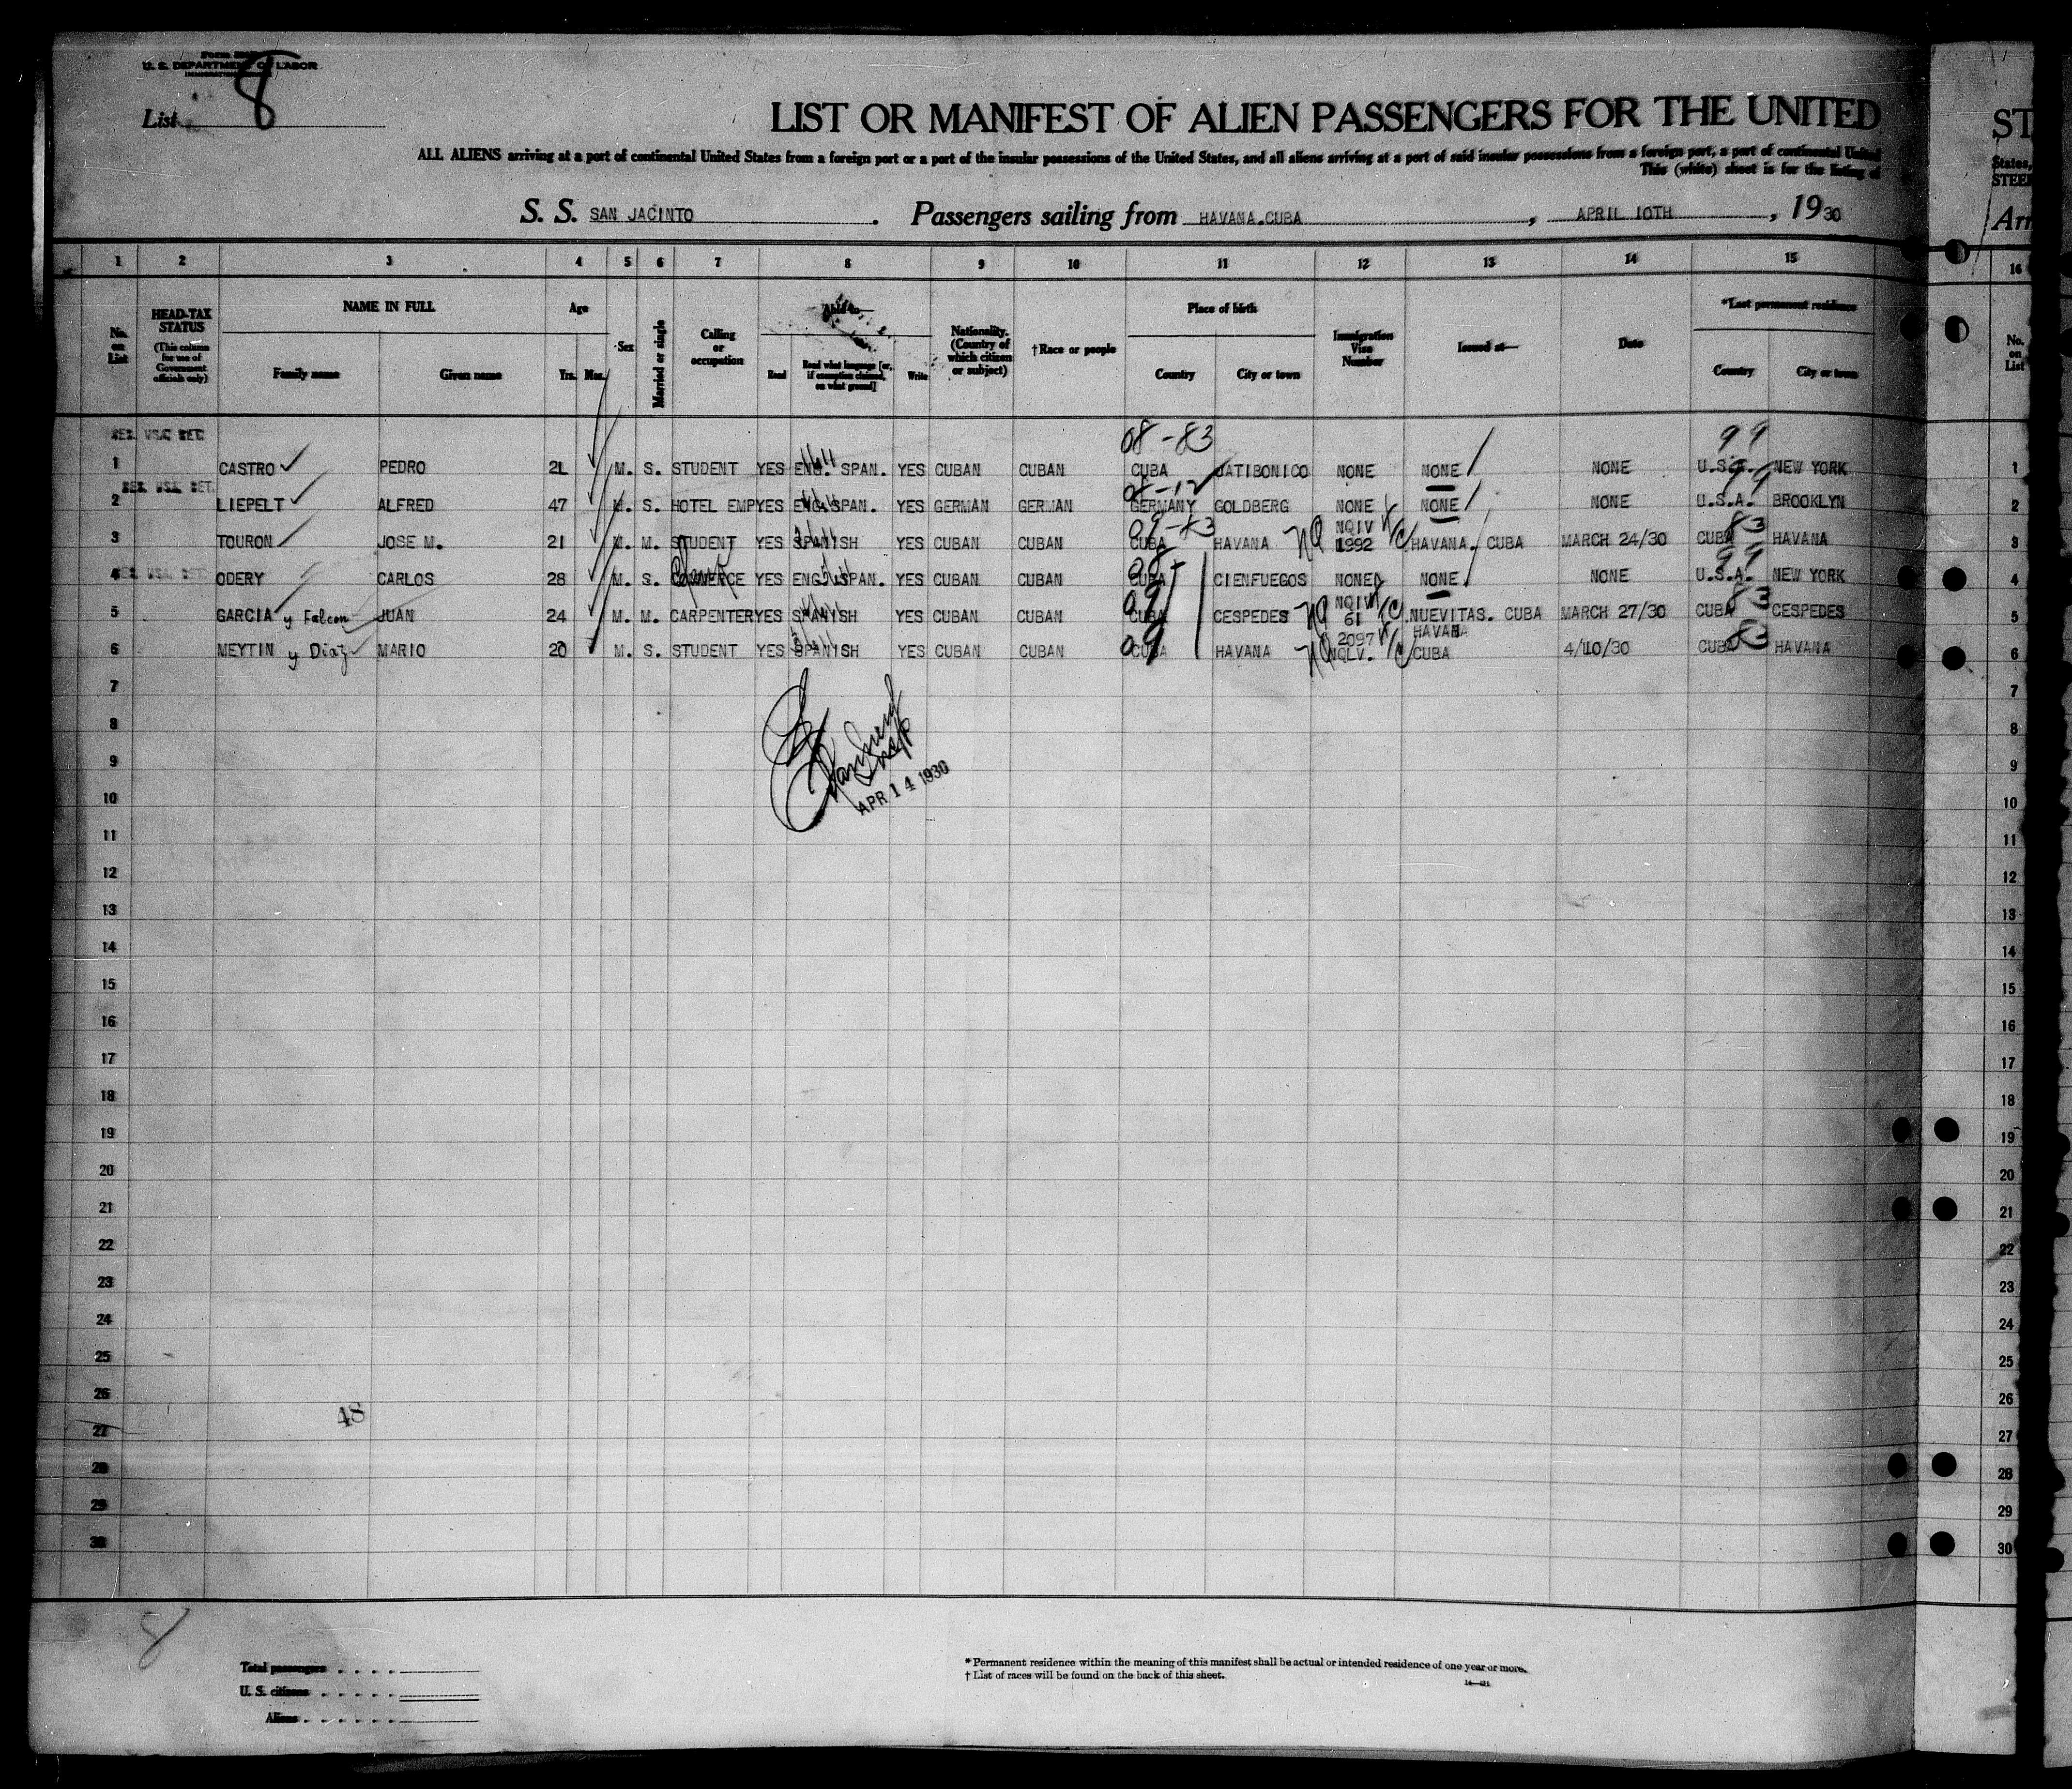 U. S. DEPARTMENT OF LABOR
List 8
LIST OR MANIFEST OF ALIEN PASSENGERS FOR THE UNITED
ST
ALL ALIENS arriving at a port of continental United States from a foreign port or a port of the insular possessions of the United States, and all aliens arriving at a port of said insular possessions from a foreign port, a port of continental United
States,
This (white) sheet is for the listing of
STEE
S. S. SAN JACINTO. Passengers sailing from HAVANA.CUBA, APRIL 10TH, 1930
Arr
1 2 3 4 5 6 7 8 9 10 11 12 13 14 15 16
No. on List
HEAD-TAX STATUS (This column for use of Government officials only)
NAME IN FULL
Family name Given name
Age
Yrs. Mos.
Sex
Married or single
Calling or occupation
Able to—
Read Read what language [or, if exemption claimed, on what ground] Write
Nationality. (Country of which citizen or subject)
†Race or people
Place of birth
Country City or town
Immigration Visa Number
Issued at—
Date
*Last permanent residence
Country City or town
No. on List
08-83 99
1 CASTRO PEDRO 21 M. S. STUDENT YES ENG. SPAN. YES CUBAN CUBAN CUBA JATIBONICO NONE NONE NONE U.S.A. NEW YORK 1
RES. USA RET.
2 LIEPELT ALFRED 47 M. S. HOTEL EMP YES ENG. SPAN. YES GERMAN GERMAN GERMANY GOLDBERG NONE NONE NONE U.S.A. BROOKLYN 2
09-83 NQIV 83
3 TOURON JOSE M. 21 M. M. STUDENT YES SPANISH YES CUBAN CUBAN CUBA HAVANA NQ 1992 HAVANA. CUBA MARCH 24/30 CUBA HAVANA 3
99
4 ODERY CARLOS 28 M. S. COMMERCE YES ENG. SPAN. YES CUBAN CUBAN CUBA CIENFUEGOS NONE NONE NONE U.S.A. NEW YORK 4
09 NQIV 83
5 GARCIA y Falcon JUAN 24 M. M. CARPENTER YES SPANISH YES CUBAN CUBAN CUBA CESPEDES NQ 61 NUEVITAS. CUBA MARCH 27/30 CUBA CESPEDES 5
09 2097 HAVANA 83
6 MEYTIN y Diaz MARIO 20 M. S. STUDENT YES SPANISH YES CUBAN CUBAN CUBA HAVANA NQ NQLV. CUBA 4/10/30 CUBA HAVANA 6
7 7
8 8
9 9
APR 14 1930
10 10
11 11
12 12
13 13
14 14
15 15
16 16
17 17
18 18
19 19
20 20
21 21
22 22
23 23
24 24
25 25
26 26
48
27 27
28 28
29 29
30 30
8
Total passengers
U. S. citizens
Aliens
* Permanent residence within the meaning of this manifest shall be actual or intended residence of one year or more.
† List of races will be found on the back of this sheet.